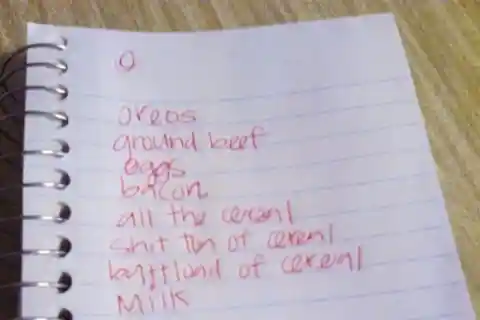 O
oreos
ground beef
eggs
bacon
all the cereal
shit ton of cereal
buttload of cereal
Milk